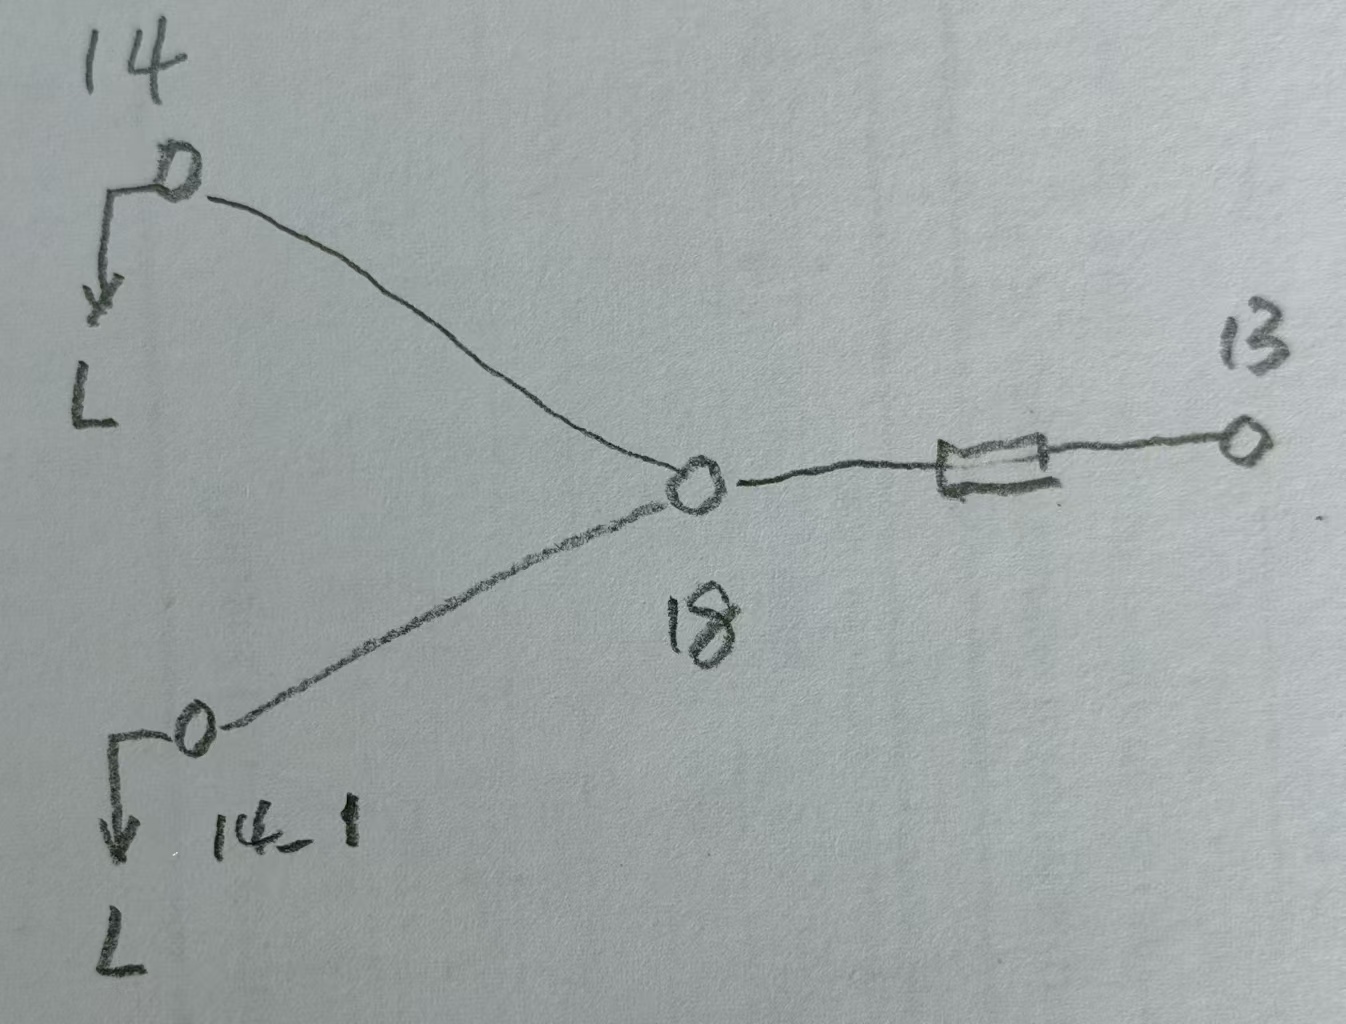 14
L
13
18
14-1
L